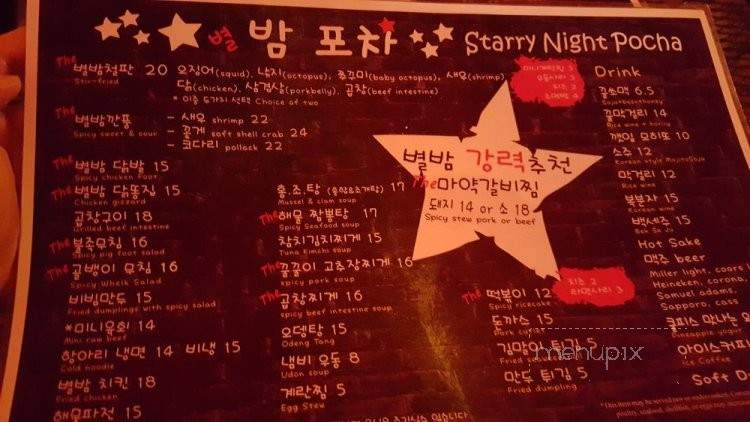 별밤 포차 Starry Night Pocha
The 별밤철판 20 오징어(squid), 낙지(octopus), 쭈꾸미(baby octopus), 새우(shrimp)
Stir-fried 닭(chicken), 삼겹살(porkbelly), 곱창(beef intestine)
* 이중 두가지 선택 Choice of two
The 별밤깐풍 - 새우 shrimp 22
Spicy sweet & sour - 꽃게 soft shell crab 24
- 코다리 pollack 22
The 별밤 닭발 15
Spicy chicken foot
The 별밤 닭똥집 15
Chicken gizzard
곱창구이 18
Grilled beef intestine
The 불족무침 16
Spicy pig foot salad
The 골뱅이 무침 16
Spicy Whelk Salad
비빔만두 15
Fried dumplings with spicy salad
*미니육회 14
Mini raw beef
항아리 냉면 14 비냉 15
Cold noodle
별밤 치킨 18
Fried chicken
해물파전 15
홍.조.탕 (홍합&조개탕) 17
Mussel & clam soup
The 해물 짬뽕탕 17
Spicy Seafood soup
참치김치찌개 15
Tuna Kimchi soup
The 꿀꿀이 고추장찌개 16
spicy pork soup
The 곱창찌개 16
spicy beef intestine soup
오뎅탕 15
Odeng Tang
냄비 우동 8
Udon soup
계란찜 5
Egg Stew
별밤 강력추천
The 마약갈비찜
돼지 14 or 소 18
Spicy stew pork or beef
치즈 2
라면사리 3
The 떡볶이 12
Spicy ricecake
돈까스 15
Pork cutlet
김말이 튀김 5
만두 튀김 5
Fried dumpling
Drink
꿀쏘맥 6.5
Soju+beer+honey
꿀막걸리 14
Rice wine + honey
깻잎 모히또 10
소주 12
Korean style Mojito/Soju
막걸리 12
Rice wine
복분자 15
Korean wine
백세주 15
Bek Se Ju
Hot Sake
맥주 beer
Miller light, coors
Heineken, corona,
Samuel adams
Sapporo, cass
쿨피스
Pineapple yogurt
아이스커피
Ice Coffee
Soft
menupix